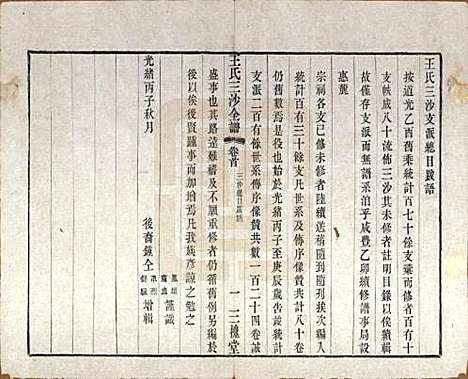 王氏三沙支派總目跋語
按道光乙酉舊乘統計百七十餘支彙而修者百有十
支軼成八十流佈三沙其未修者註明目錄以俟續修
故僅存支派而無譜系洎乎咸豐乙卯續修譜事局設
惠麓
宗祠各支已修未修者陸續送稿隨到隨列挨次編刊
統計百有三十餘支凡世系傳序像贊共計八十卷
仍舊數焉是役也始於光緒丙子迄庚辰歲告竣統計
支派二百有餘世系傳序像贊共數一百二十四卷誠
王氏三沙全譜
卷首
三沙總目跋語
一
三槐堂
盛事也其路遠難稽及不願重修者仍循舊例另編於
後以俟後賢踵事而加增焉凡我族彥諒之勉之
光緒丙子秋月
後裔鍾全
謹識
增輯